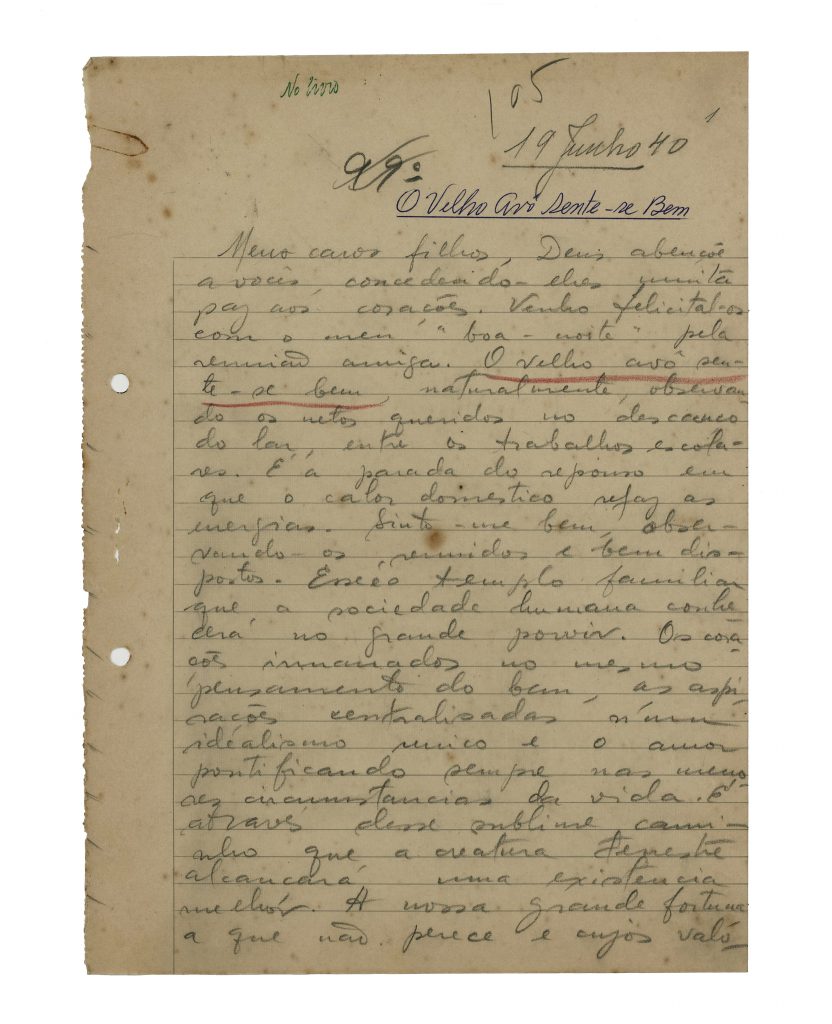 No livro
105
1
19 Junho 40
99º
O Velho Avô Sente-se Bem
Meus caros filhos, Deus abençôe
a vocês, concedendo-lhes muita
paz aos corações. Venho felicital-os
com o meu "boa-noite" pela
reunião amiga. O velho avô sen-
te-se bem, naturalmente, observan
do os netos queridos no descanço
do lar, entre os trabalhos escola-
res. É a parada do repouso em
que o calor domestico refaz as
energias. Sinto-me bem, obser-
vando-os reunidos e bem dis-
postos. Esse é o templo familiar
que a sociedade humana conhe
cerá no grande porvir. Os cora
ções irmanados no mesmo
pensamento do bem, as aspi
rações centralisadas n'um
idéalismo unico e o amor
pontificando sempre nas meno-
res circumstancias da vida. É
através desse sublime cami-
nho que a creatura terrestre
alcançará uma existencia
melhór. A nossa grande fortuna
a que não perece e cujos valô